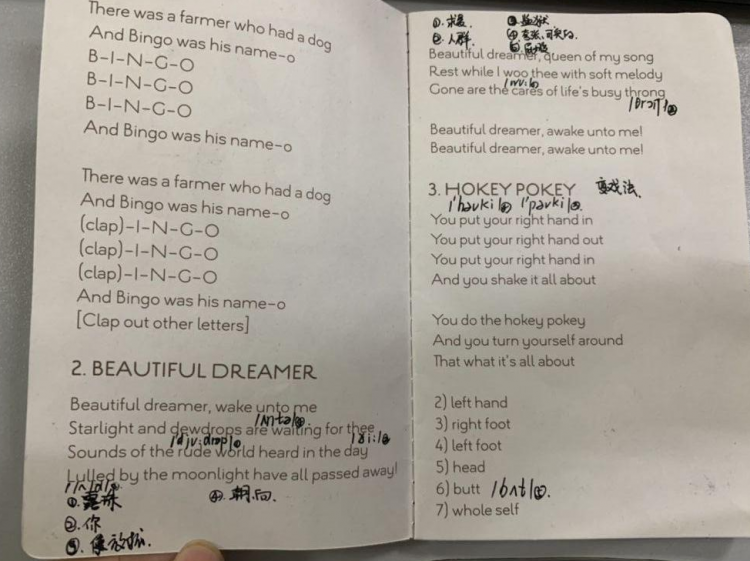 There was a farmer who had a dog
And Bingo was his name-o
B-I-N-G-O
B-I-N-G-O
B-I-N-G-O
And Bingo was his name-o
There was a farmer who had a dog
And Bingo was his name-o
(clap)-I-N-G-O
(clap)-I-N-G-O
(clap)-I-N-G-O
And Bingo was his name-o
[Clap out other letters]
2. BEAUTIFUL DREAMER
Beautiful dreamer, wake unto me
Starlight and dewdrops are waiting for thee
Sounds of the rude world heard in the day
Lulled by the moonlight have all passed away!
①露珠
④朝向
②你
②人群
Beautiful dreamer, queen of my song
Rest while I woo thee with soft melody
Gone are the cares of life's busy throng
Beautiful dreamer, awake unto me!
Beautiful dreamer, awake unto me!
3. HOKEY POKEY 变戏法.
You put your right hand in
You put your right hand out
You put your right hand in
And you shake it all about
You do the hokey pokey
And you turn yourself around
That what it's all about
2) left hand
3) right foot
4) left foot
5) head
6) butt /bʌt/
7) whole self